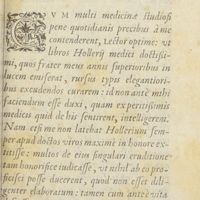 CVM multi medicinæ studiosi
pene quotidianis precibus à me
contenderent, Lector optime, vt
libros Hollerij medici doctissi-
mi, quos frater meus annis superioribus in
lucem emiserat, rursus typis elegantiori-
bus excudendos curarem: id non antè mihi
faciendum esse duxi, quàm ex peritissimis
medicis quid de his sentirent, intelligerem.
Nam etsi me non latebat Hollerium sem-
per apud doctos viros maximè in honore ex-
titisse: multos de eius singulari eruditione
tam honorificè iudicasse, vt nihil ab eo pro-
ficisci posse dicerent, quod non esset dili-
genter elaboratum: tamen cum antè vita